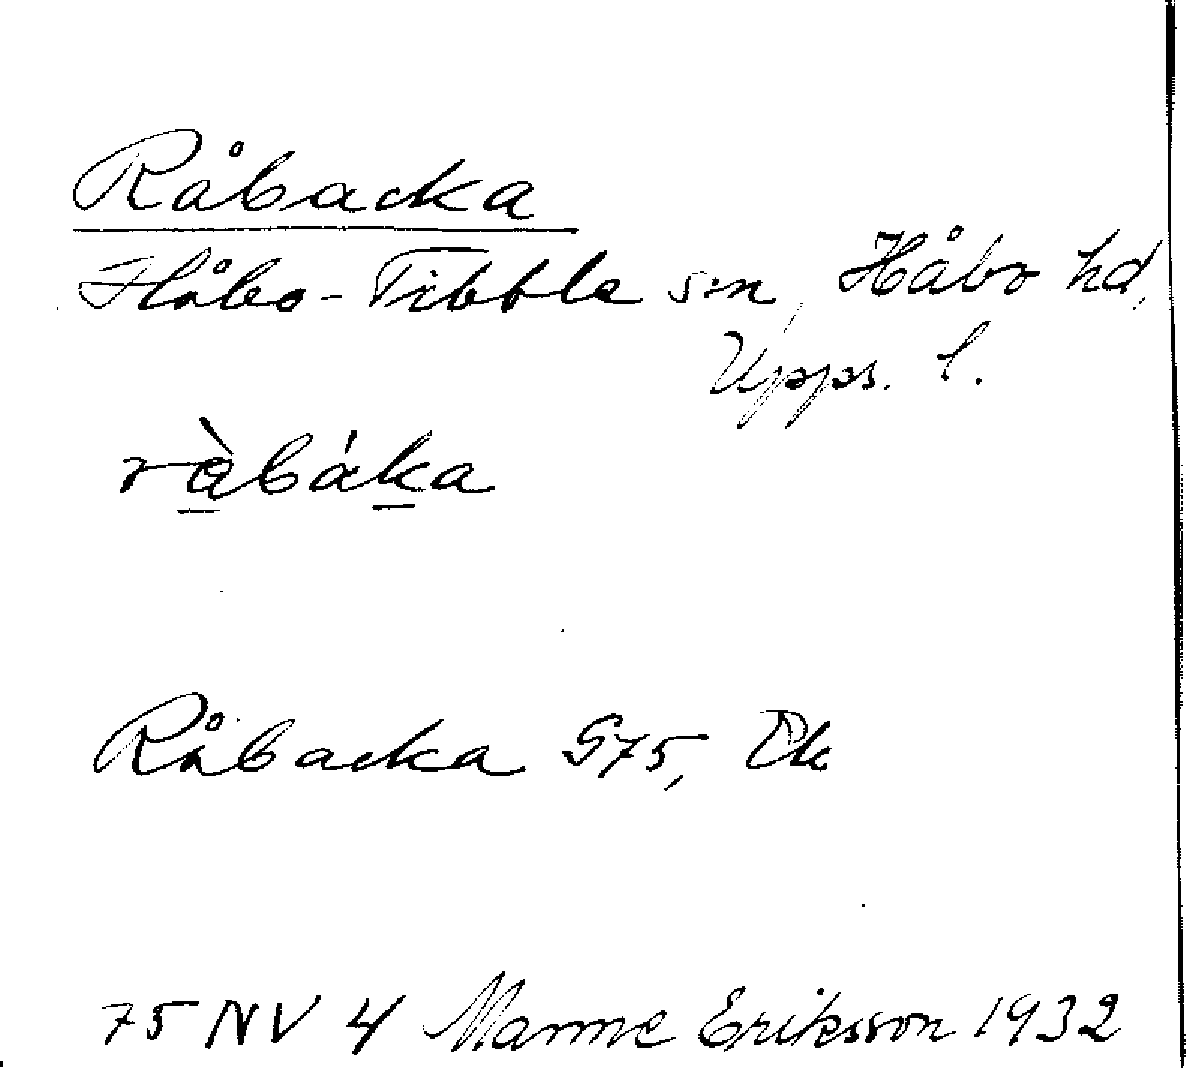 Råbacka
Håbo-Tibble sn, Håbo hd,
Upps. l.
ràbáka
Råbacka G75, Ek
75 NV 4 Manne Eriksson 1932